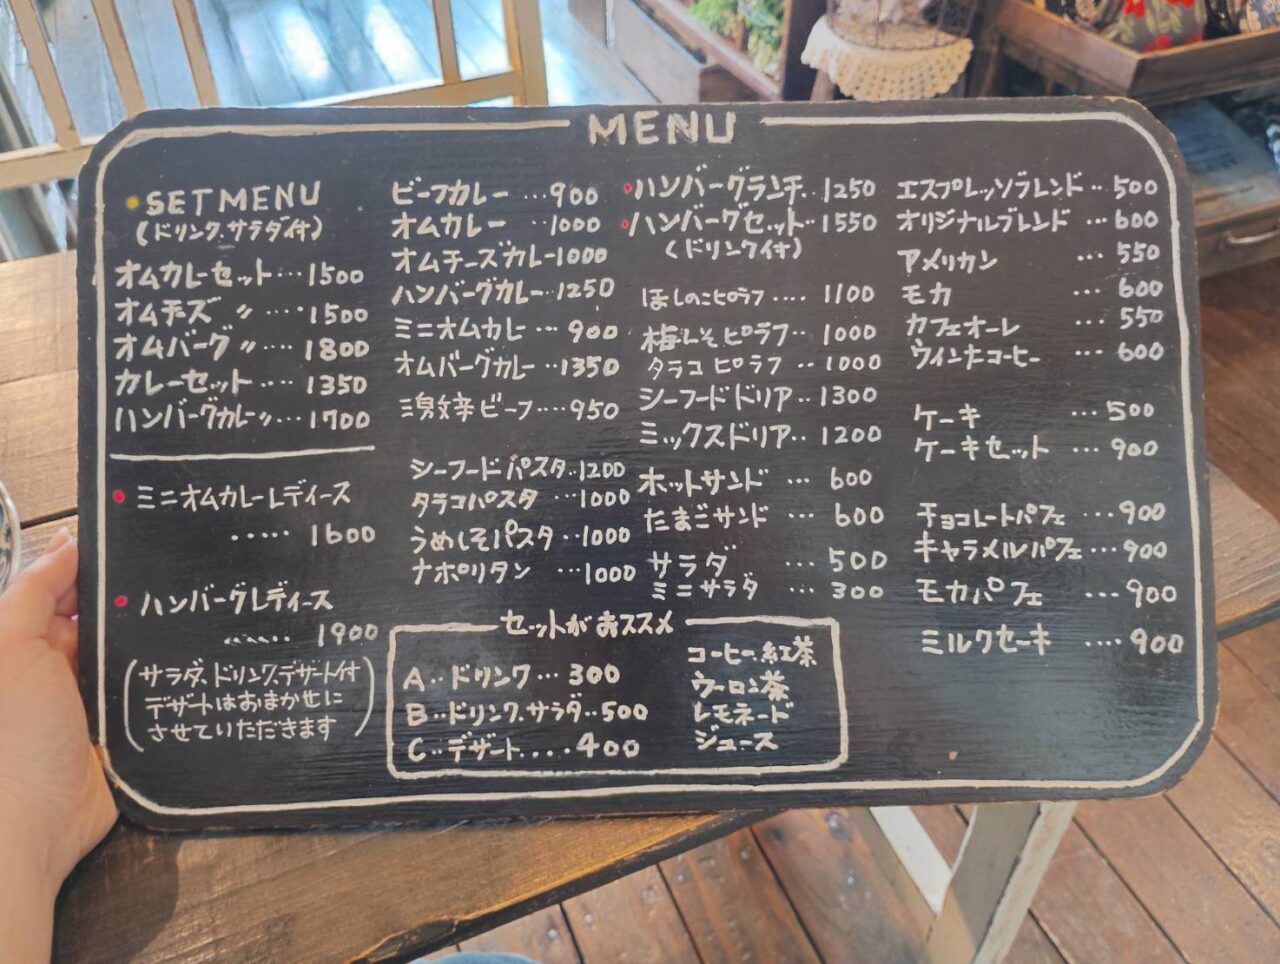 MENU
SET MENU
(ドリンク、サラダ付)
オムカレーセット・・・1500
オムチーズ 〃 ・・・・1500
オムバーグ 〃 ・・・・1800
カレーセット・・・・1350
ハンバーグカレー〃・・・・1700
ミニオムカレーレディース
・・・・・1600
ハンバーグレディース
・・・・・・1900
(サラダ、ドリンク、デザート付
デザートはおまかせに
させていただきます)
ビーフカレー・・・900
オムカレー・・・1000
オムチーズカレー1000
ハンバーグカレー・・1250
ミニオムカレー・・・900
オムバーグカレー・・1350
激辛ビーフ・・・・950
シーフードパスタ・・1200
タラコパスタ・・・1000
うめしそパスタ・・1000
ナポリタン・・・1000
ハンバーグランチ・1250
ハンバーグセット・・1550
(ドリンク付)
ほしのこピラフ・・・・1100
梅しそピラフ・・1000
タラコピラフ・・1000
シーフードドリア・・1300
ミックスドリア・・1200
ホットサンド・・・600
たまごサンド・・・600
サラダ・・・500
ミニサラダ・・・300
エスプレッソブレンド・・500
オリジナルブレンド・・・600
アメリカン・・・550
モカ・・・600
カフェオーレ・・・550
ウインナコーヒー・・・600
ケーキ・・・500
ケーキセット・・・900
チョコレートパフェ・・・900
キャラメルパフェ・・・900
モカパフェ・・・900
ミルクセーキ・・・・900
セットがおススメ
A・・ドリンク・・・300
B・・ドリンク、サラダ・・500
C・・デザート・・・・400
コーヒー、紅茶
ウーロン茶
レモネード
ジュース